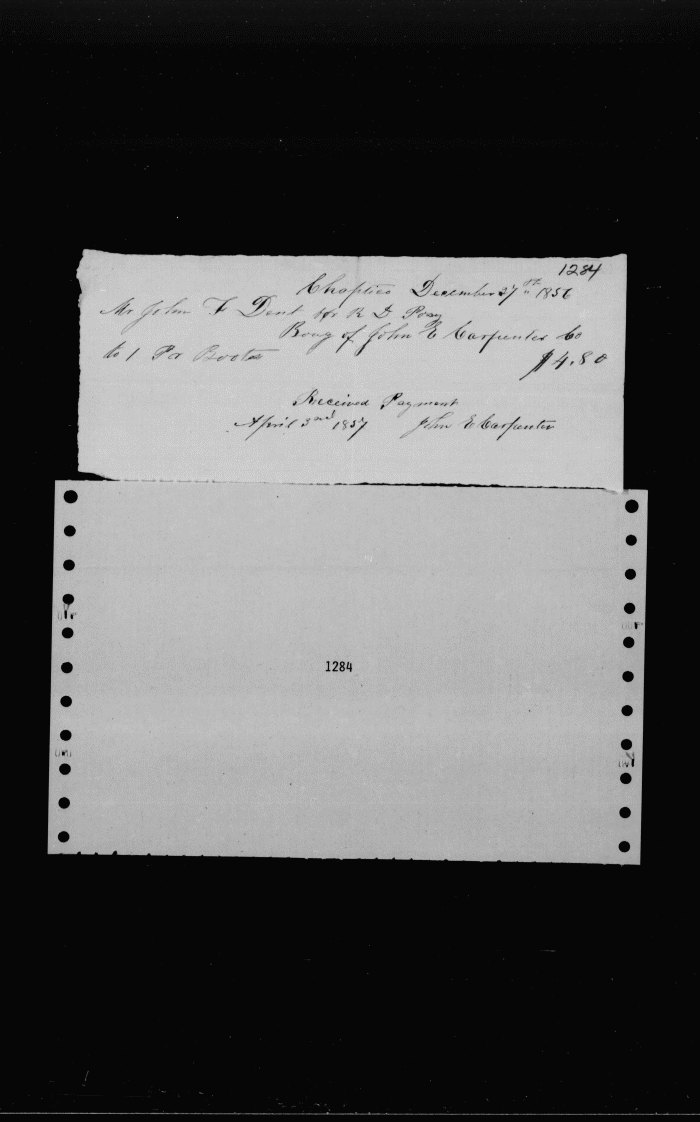 1284
Chaptico December 27th 1856
Mr John F Dent for R D Posey
Boug of John E Carpenter Co
to 1 Pa Boots $4.80
Received Payment
April 3rd 1857 John E Carpenter
1284